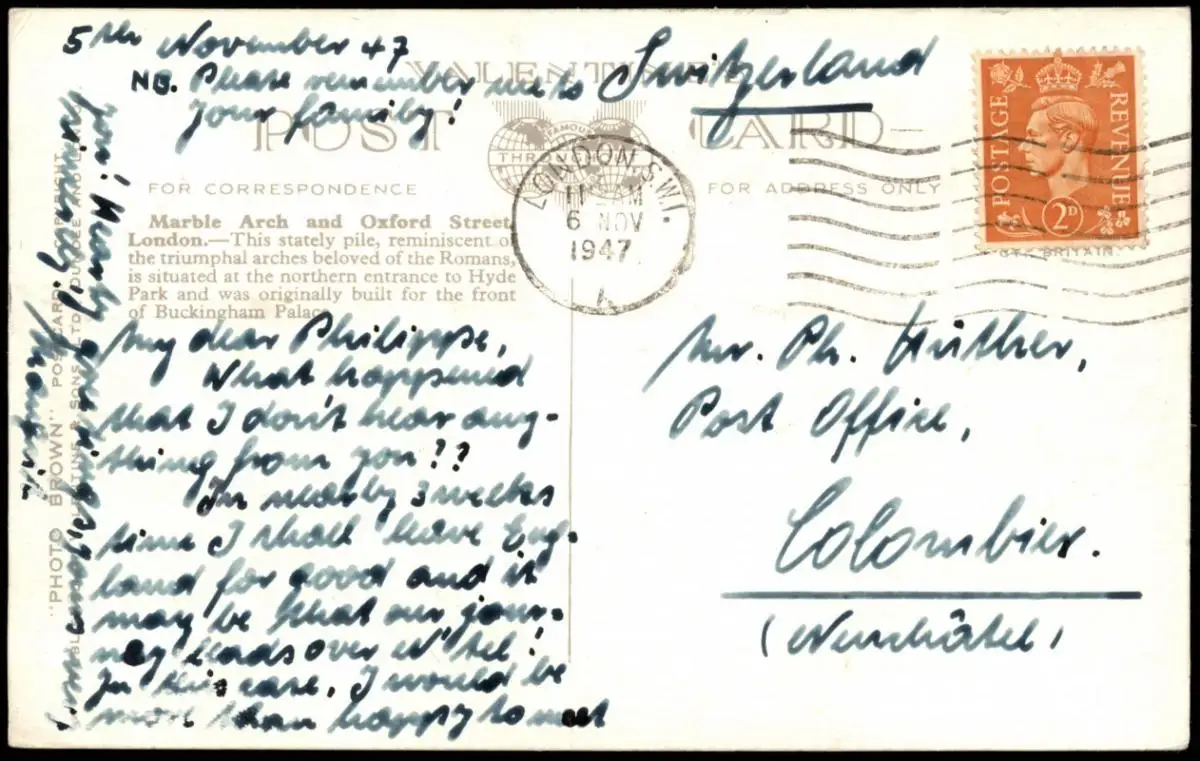 5th November 47
NB. Please remember me to
your family!
Switzerland
VALENTINE'S
POST CARD
FAMOUS
THROUGHOUT
FOR CORRESPONDENCE
FOR ADDRESS ONLY
Marble Arch and Oxford Street,
London.—This stately pile, reminiscent of
the triumphal arches beloved of the Romans,
is situated at the northern entrance to Hyde
Park and was originally built for the front
of Buckingham Palace.
LONDON. S.W.1.
AM
6 NOV
1947
A
POSTAGE
REVENUE
2D
GT. BRITAIN.
My dear Philippe,
What happened
that I don't hear any-
thing from you??
In nearby 3 weeks
time I shall leave Eng-
land for good and it
may be that our jour-
ney leads over N'tel!
In this case, I would be
more than happy to meet
you!
yours sincerely
"PHOTO BROWN" POSTCARD COPYRIGHT
VALENTINE & SONS, LTD., DUNDEE AND
Mr. Ph. Hüther,
Post Office,
Colombier.
(Neuchâtel)